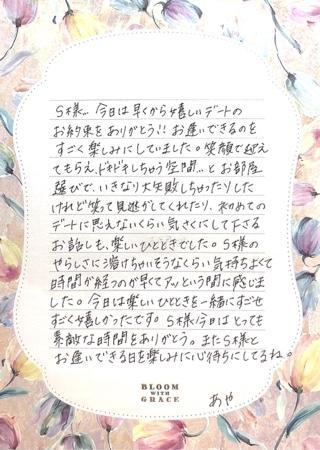 S様… 今日は早くから嬉しいデートの
お約束をありがとう!! お逢いできるのを
すごく楽しみにしていました。笑顔で迎え
てもらえ、ドキドキしちゃう空間… とお部屋
選びで、いきなり大失敗しちゃったりした
けれど笑って見逃がしてくれたり、初めての
デートに思えないくらい気さくにして下さる
お話しも、楽しいひとときでした。S様の
やらしさに溶けちゃいそうなくらい気持ちよくて
時間が経つのが早くてアッという間に感じま
した。今日は楽しいひとときを一緒にすごせ
すごく嬉しかったです。S様今日はとっても
素敵な時間をありがとう。またS様と
お逢いできる日を楽しみに心待ちにしてるね。
BLOOM
WITH
GRACE
あや